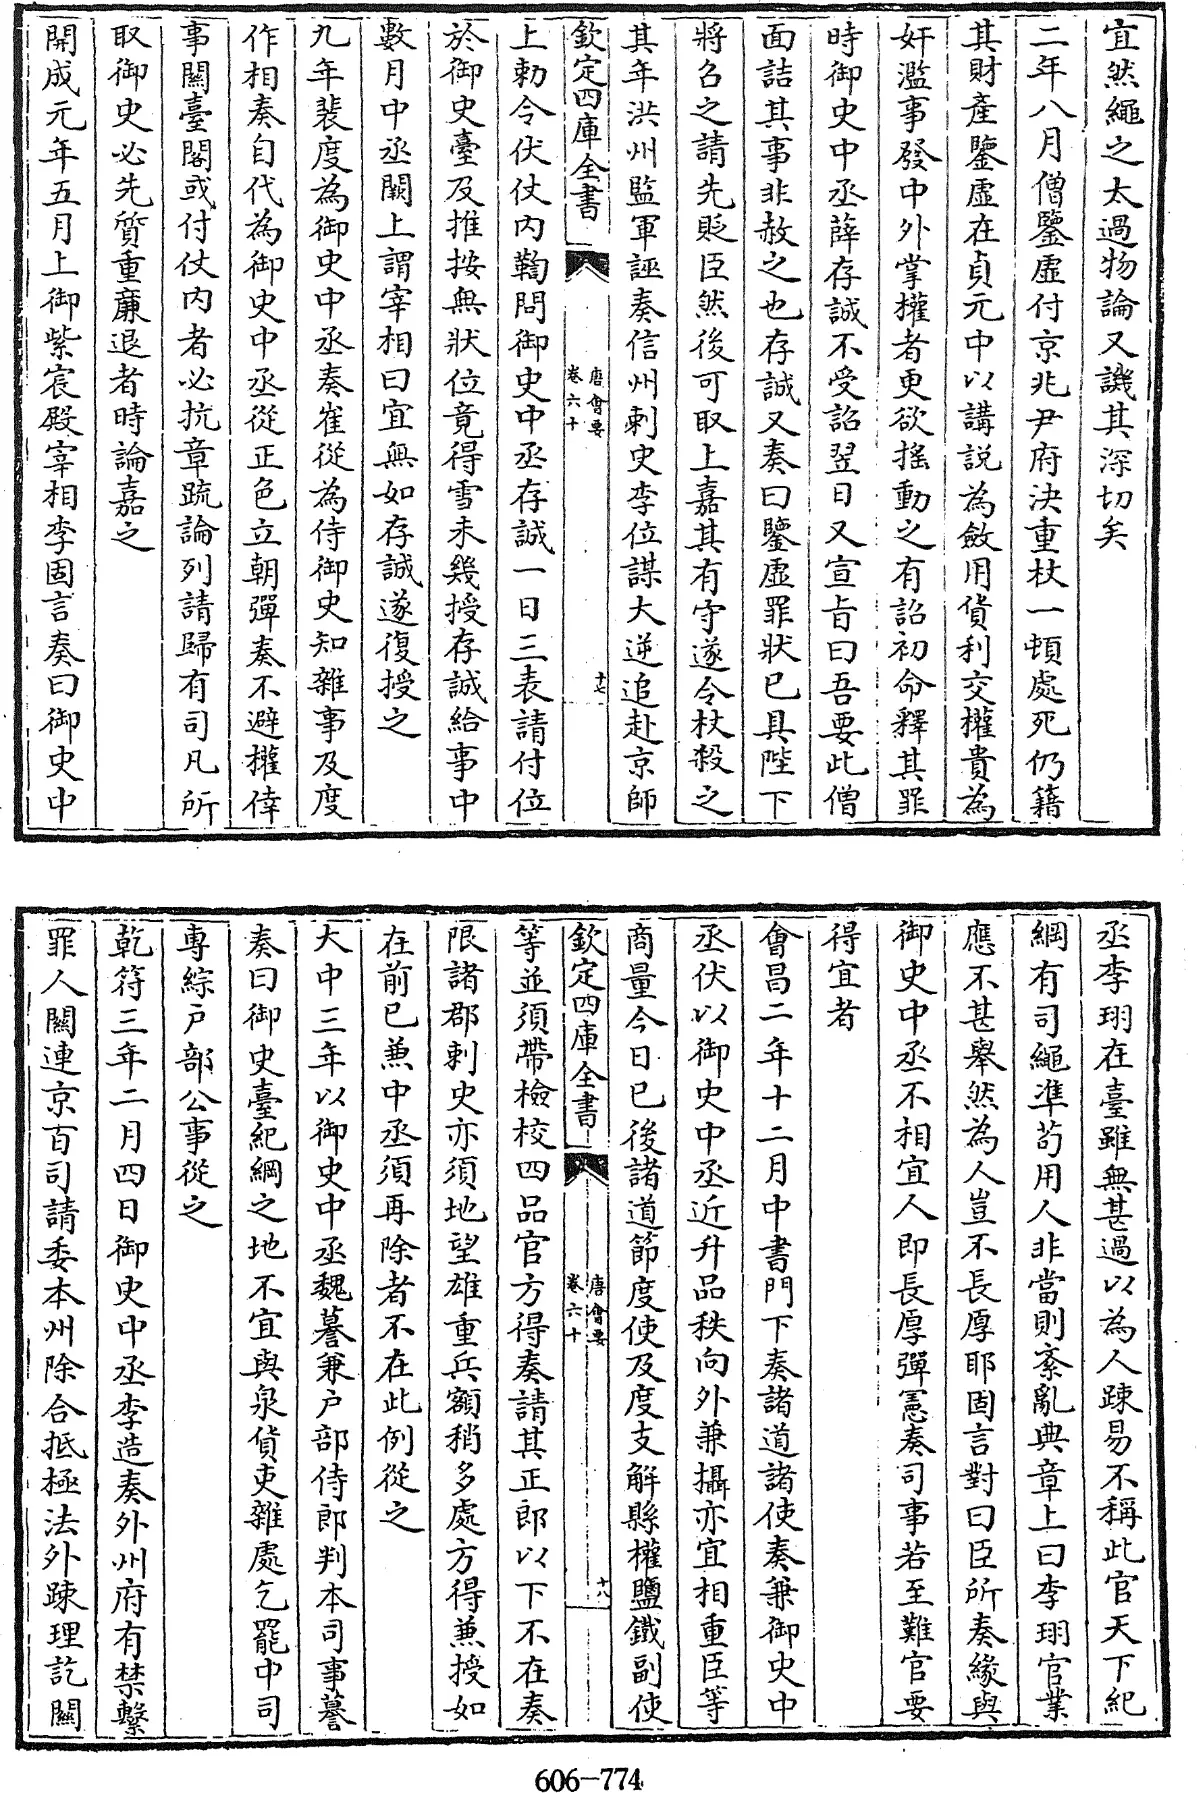 宜然繩之太過物論又譏其深切矣
二年八月僧鑒虛付京兆尹府決重杖一頓處死仍籍
其財產鑒虛在貞元中以講說為斂用貨利交權貴為
奸濫事發中外掌權者更欲搖動之有詔初命釋其罪
時御史中丞薛存誠不受詔翌日又宣旨曰吾要此僧
面詰其事非赦之也存誠又奏曰鑒虛罪狀已具陛下
將召之請先貶臣然後可取上嘉其有守遂令杖殺之
其年洪州監軍誣奏信州刺史李位謀大逆追赴京師
欽定四庫全書
唐會要
卷六十
十七
上勅令伏仗內鞫問御史中丞存誠一日三表請付位
於御史臺及推按無狀位竟得雪未幾授存誠給事中
數月中丞闕上謂宰相曰宜無如存誠遂復授之
九年裴度為御史中丞奏崔從為侍御史知雜事及度
作相奏自代為御史中丞從正色立朝彈奏不避權倖
事關臺閣或付仗內者必抗章疏論列請歸有司凡所
取御史必先質重廉退者時論嘉之
開成元年五月上御紫宸殿宰相李固言奏曰御史中
丞李珝在臺雖無甚過以為人踈易不稱此官天下紀
綱有司繩準苟用人非當則紊亂典章上曰李珝官業
應不甚舉然為人豈不長厚耶固言對曰臣所奏緣與
御史中丞不相宜人即長厚彈憲奏司事若至難官要
得宜者
會昌二年十二月中書門下奏諸道諸使奏兼御史中
丞伏以御史中丞近升品秩向外兼攝亦宜相重臣等
商量今日已後諸道節度使及度支解縣權鹽鐵副使
欽定四庫全書
唐會要
卷六十
十八
等並須帶檢校四品官方得奏請其正郎以下不在奏
限諸郡刺史亦須地望雄重兵額稍多處方得兼授如
在前已兼中丞須再除者不在此例從之
大中三年以御史中丞魏謩兼户部侍郎判本司事謩
奏曰御史臺紀綱之地不宜與泉貨吏雜處乞罷中司
專綜户部公事從之
乾符三年二月四日御史中丞李造奏外州府有禁繫
罪人關連京百司請委本州除合抵極法外踈理訖關
606-774